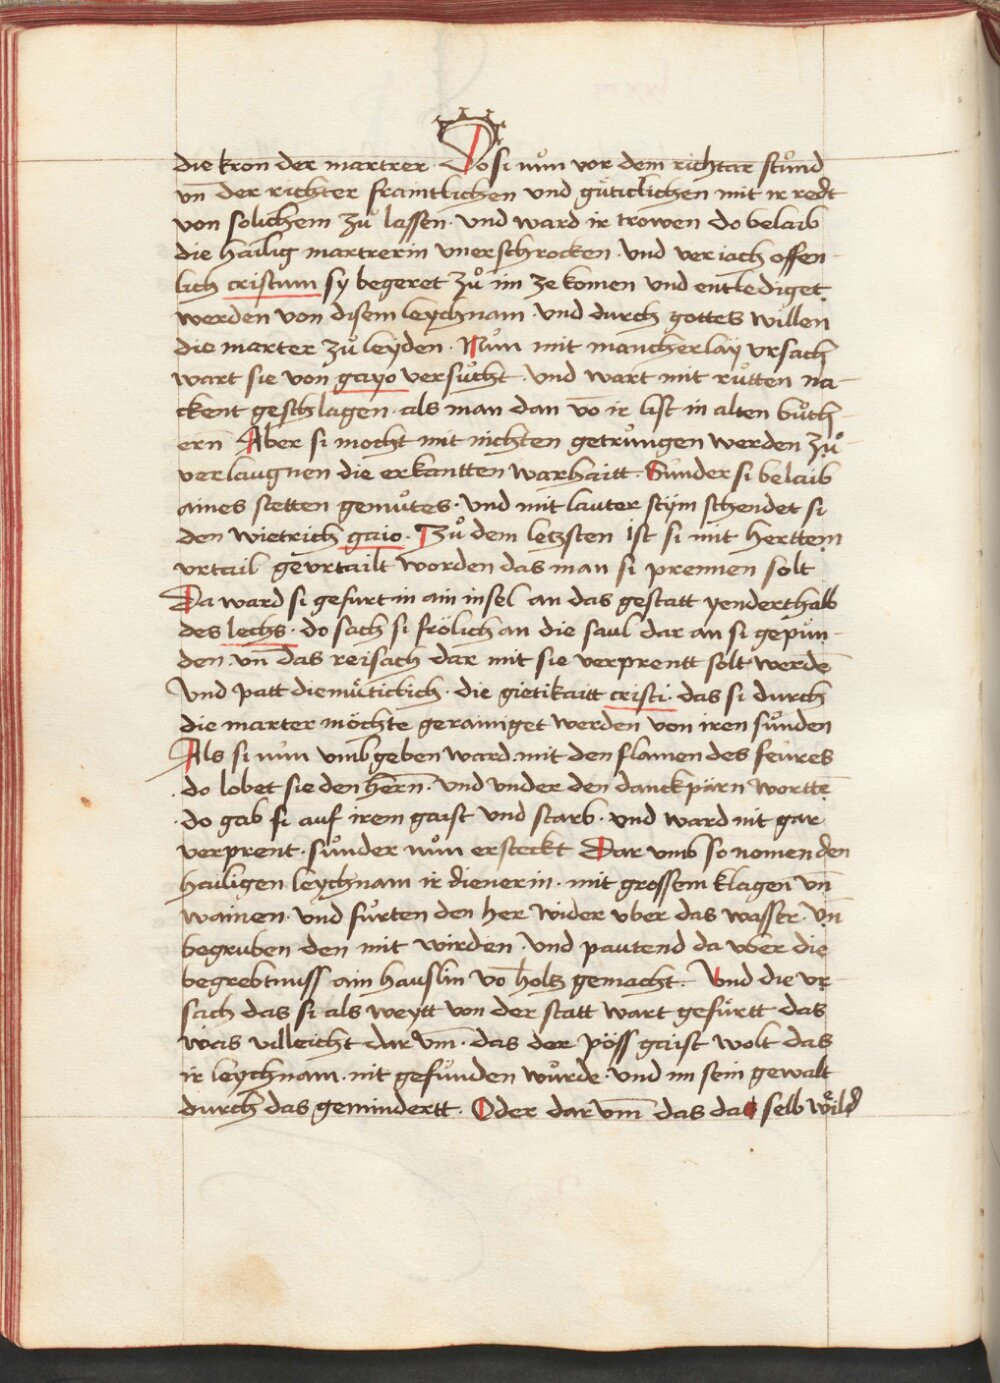 die kron der martrer · Do si nůn vor dem richtar stůnd
vn̄ der richter fraintlichen und gůticlichen mit ir redt
von solichem zů lassen · und ward ir trowen do belaib
die hailig martrerin unerschrocken · und veriach offen-
lich cristum sy begeret zů im ze komen und entlediget
werden von disem leychnam · und durch gottes willen
die marter zů leyden · Nůn mit mancherlaÿ ursach
wart sie von gayo versůcht · und wart mit růtten na-
ckent geschlagen · als man dan vō ir list in alten bůch-
ern Aber si mocht mit nichten getrůngen werden zů
verlaugnen die erkantten warhaitt · Sunder si belaib
aines stetten gemůtes · und mit lauter stÿm schendet si
den wietrich gaio · Zů dem letzsten ist si mit herttem
urtail gevrtailt worden das man si prennen solt
Da ward si gefurt in ain insel an das gestatt yenderthalb
des lechs · do sach si frölich an die saul dar an si gepůn-
den · vn̄ das reisach dar mit sie verprentt solt werdē
Und patt diemůticlich · die gietikaitt cristi · das si durch
die marter möchte gerainiget werden von iren sůnden
Als si nun umbgeben ward mit den flamen des feures
do lobet sie den hern̄ · und under den danckpärn worttē
do gab si auf irem gaist und starb · und ward nit gar
verprent · sůnder nůn ersteckt Dar umb so nomen den
hailigen leychnam ir dienerin · mit grossem klagen vn̄
wainen · und fůrten den her wider uber das wasser · vn̄
begruben den mit wirden · und pautend da uber die
begrebtnuss ain hauslin vō holtz gemacht · Und die ur-
sach das si als weytt von der statt wart gefůrtt das
was villeicht dar vm̄ · das der pöss gaist wolt das
ir leychnam · nit gefunden wůrde · und in sein gewalt
durch das gemindertt · Oder dar vm̄ das das selb wild